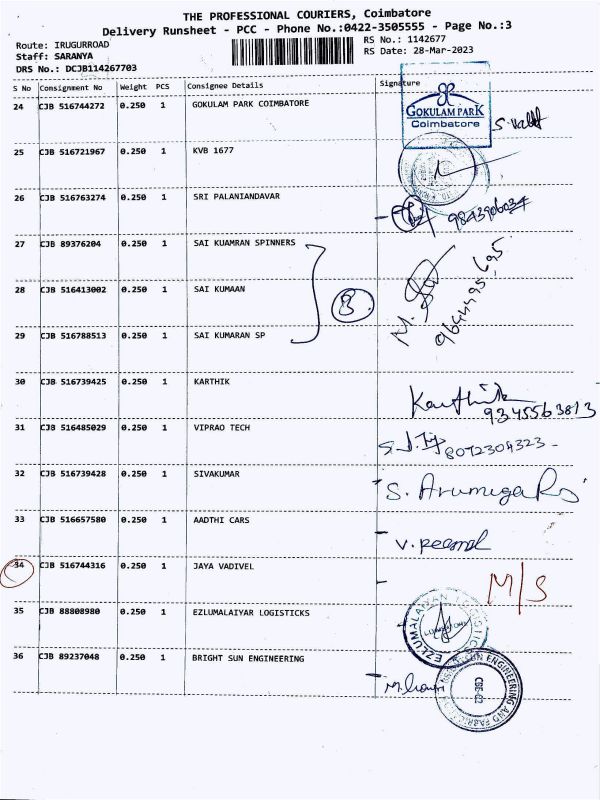 THE PROFESSIONAL COURIERS, Coimbatore
Delivery Runsheet - PCC - Phone No.:0422-3505555 - Page No.:3
Route: IRUGURROAD
RS No.: 1142677
Staff: SARANYA
RS Date: 28-Mar-2023
DRS No.: DCJB114267703
S No Consignment No Weight PCS Consignee Details Signature
24 CJB 516744272 0.250 1 GOKULAM PARK COIMBATORE
GOKULAM PARK
Coimbatore
25 CJB 516721967 0.250 1 KVB 1677
26 CJB 516763274 0.250 1 SRI PALANIANDAVAR
9843906034
27 CJB 89376204 0.250 1 SAI KUAMRAN SPINNERS
28 CJB 516413002 0.250 1 SAI KUMAAN
3
29 CJB 516788513 0.250 1 SAI KUMARAN SP
30 CJB 516739425 0.250 1 KARTHIK
Karthik
9345563813
31 CJB 516485029 0.250 1 VIPRAO TECH
8072304323
32 CJB 516739428 0.250 1 SIVAKUMAR
S. Arumuga
33 CJB 516657580 0.250 1 AADTHI CARS
34 CJB 516744316 0.250 1 JAYA VADIVEL
M/S
35 CJB 88808980 0.250 1 EZLUMALAIYAR LOGISTICKS
36 CJB 89237048 0.250 1 BRIGHT SUN ENGINEERING
CBE-62